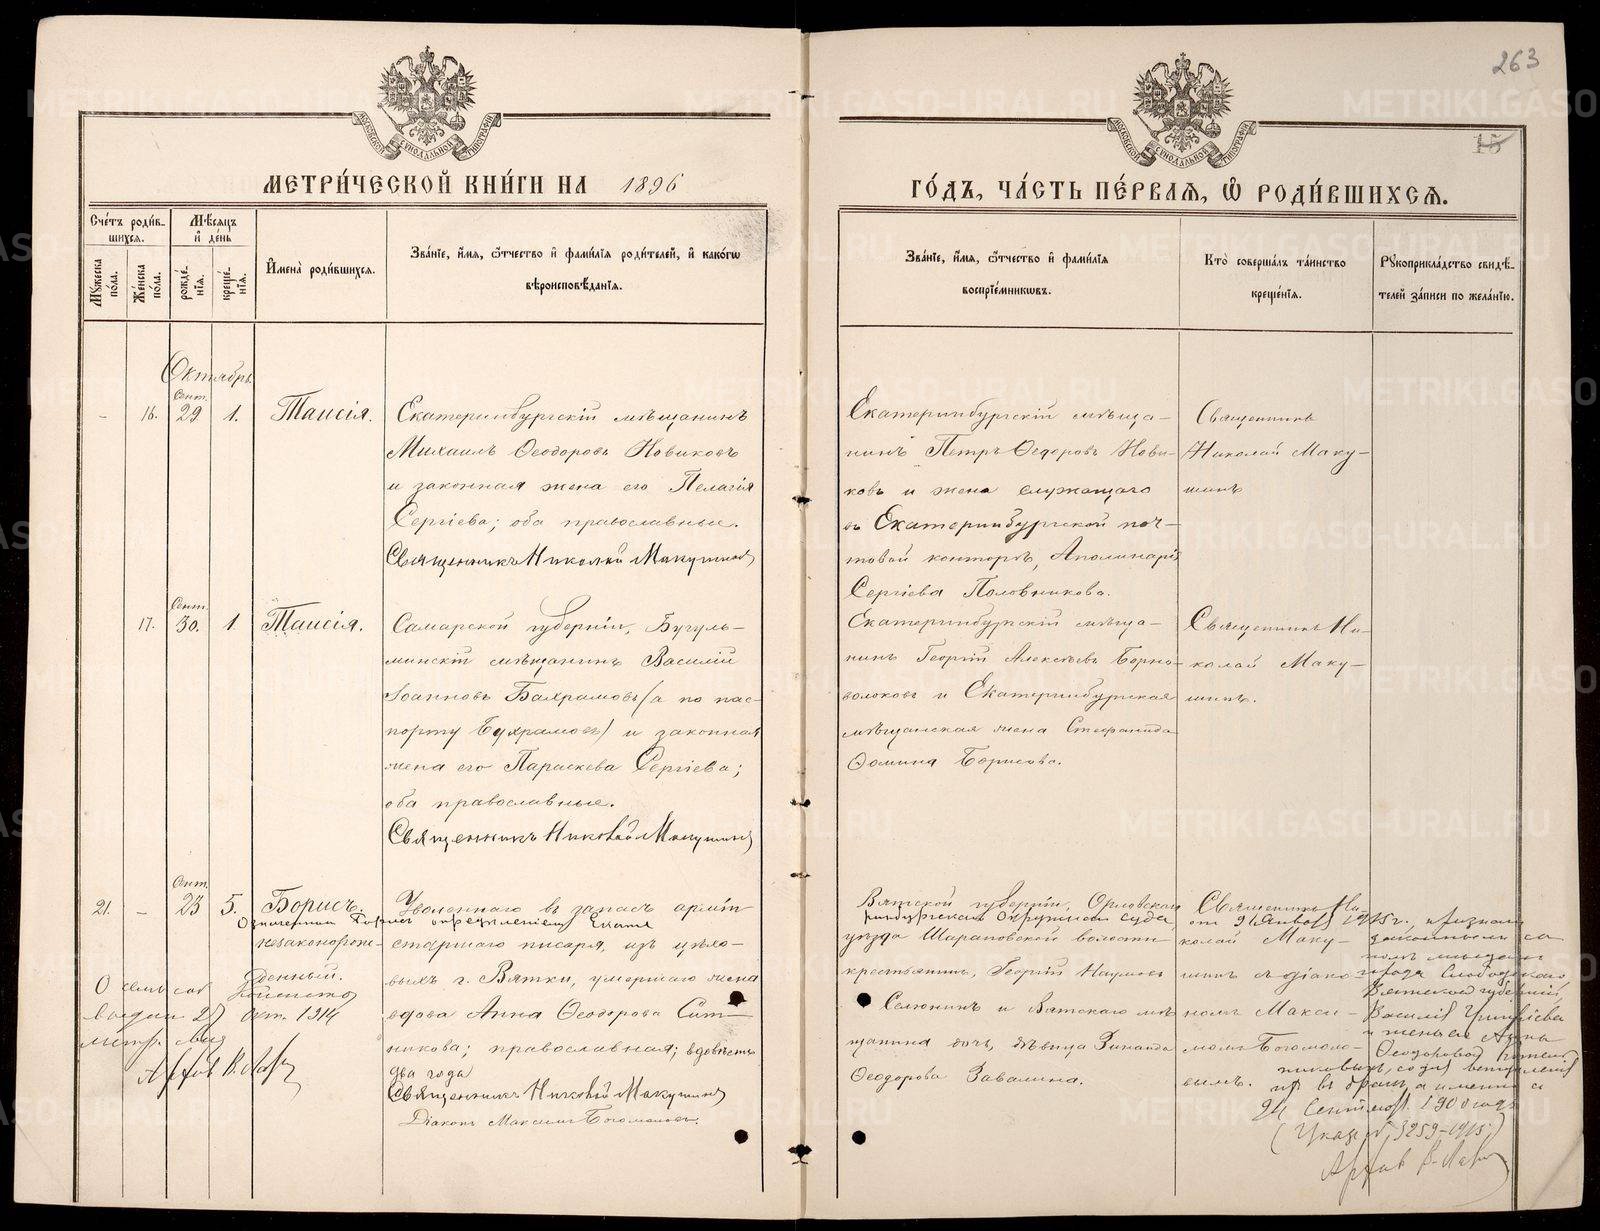 263
15
МОСКОВСКОЙ СѴНОДАЛЬНОЙ ТИПОГРАФІИ
МОСКОВСКОЙ СѴНОДАЛЬНОЙ ТИПОГРАФІИ
МЕТРИ́ЧЕСКОЙ КНИ́ГИ НА 1896
ГО́ДЪ, ЧА́СТЬ ПЕ́РВАЯ, Ѽ РОДИ́ВШИХСЯ.
Сче́тъ роди́в-
шихся.
Му́жеска по́ла.
Же́нска по́ла.
Мѣ́сяцъ
и҆ де́нь
рожде́-
нїя.
креще́-
нїя.
И҆мена̀ роди́вшихся.
Зва́нїе, и҆́мя, ѻ҆́тчество и҆ фами́лїя роди́телей, и҆ како́гѡ
вѣроисповѣ́данїя.
Зва́нїе, и҆́мя, ѻ҆́тчество и҆ фами́лїя
воспрїе́мникѡвъ.
Кто̀ соверша́лъ та́инство
креще́нїя.
Рꙋкоприкла́дство свидѣ́-
телей за́писи по жела́нїю.
Октябрь
Сент.
– 16. 29 1. Таисія.
Екатеринбургскій мѣщанинъ
Михаилъ Ѳеодоровъ Новиковъ
и законная жена его Пелагія
Сергіева; оба православные.
Священникъ Николай Макушинъ
Екатеринбургскій мѣща-
нинъ Петръ Ѳедоровъ Нови-
ковъ и жена служащаго
въ Екатеринбургской поч-
товой конторѣ, Аполинарія
Сергіева Половникова.
Священникъ
Николай Маку-
шинъ
Сент.
17. 30. 1. Таисія.
Самарской губерніи, Бугуль-
минскій мѣщанинъ Василій
Іоанновъ Бахрамовъ (а по пас-
порту Бухрамовъ) и законная
жена его Параскева Сергіева;
оба православные.
Священникъ Николай Макушинъ
Екатеринбургскій мѣща-
нинъ Георгій Алексѣевъ Борно-
волоковъ и Екатеринбургская
мѣщанская жена Стефанида
Ѳомина Борисова.
Священникъ Ни-
колай Маку-
шинъ.
Сент.
21. – 23 5. Борисъ.
незаконорож-
денный.
Уволеннаго въ запасъ арміи
старшаго писаря, изъ цѣхо-
выхъ г. Вятки, умершаго жена
вдова Анна Ѳеодорова Сит-
никова; православная; вдовѣетъ
два года
Священникъ Николай Макушинъ
Діаконъ Максимъ Богомоловъ.
Вятской губерніи, Орловскаго
уѣзда Шарановской волости
крестьянинъ, Георгій Наумовъ
Селюнинъ и Вятскаго мѣ-
щанина дочь, дѣвица Зинаида
Ѳеодорова Завалина.
Священникъ Ни-
колай Маку-
шинъ съ діако-
номъ Макси-
момъ Богомоло-
вымъ.
Означенный Борисъ опредѣленіемъ Екате
ринбургскаго Окружнаго суда,
от 9 Января 1915 г. признанъ
законнымъ сы
номъ мѣщанъ
города Слободскаго
Вятской губерніи,
Василія Григорьева
и жены его Анны
Ѳеодоровой
со дня вступленія
ихъ въ бракъ, а именно съ
24 Сентября 1900 года
(Указъ 3259-1915.)
О семъ
выдан 27 Окт. 1914
метр.